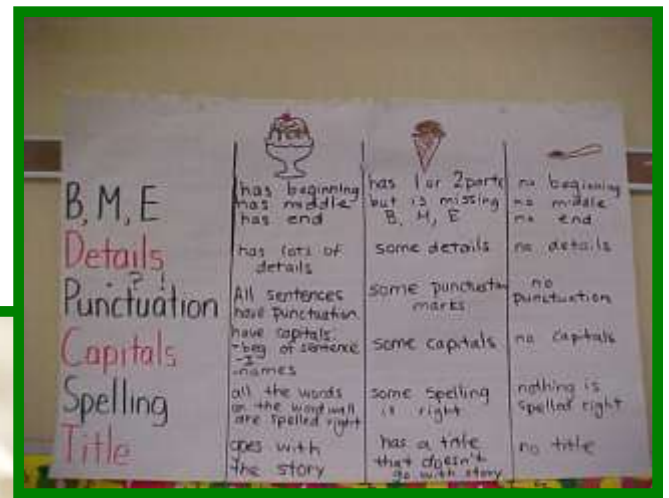 B, M, E
has beginning
has middle
has end
has 1 or 2 parts
but is missing
B, M, E
no beginning
no middle
no end
Details
has lots of
details
some details
no details
. ? !
Punctuation
All sentences
have punctuation
some punctuation
marks
no
punctuation
Capitals
have capitals
- beg of sentence
- I
- names
some capitals
no capitals
Spelling
all the words
on the word wall
are spelled right
some spelling
is right
nothing is
spelled right
Title
goes with
the story
has a title
that doesn't
go with story
no title